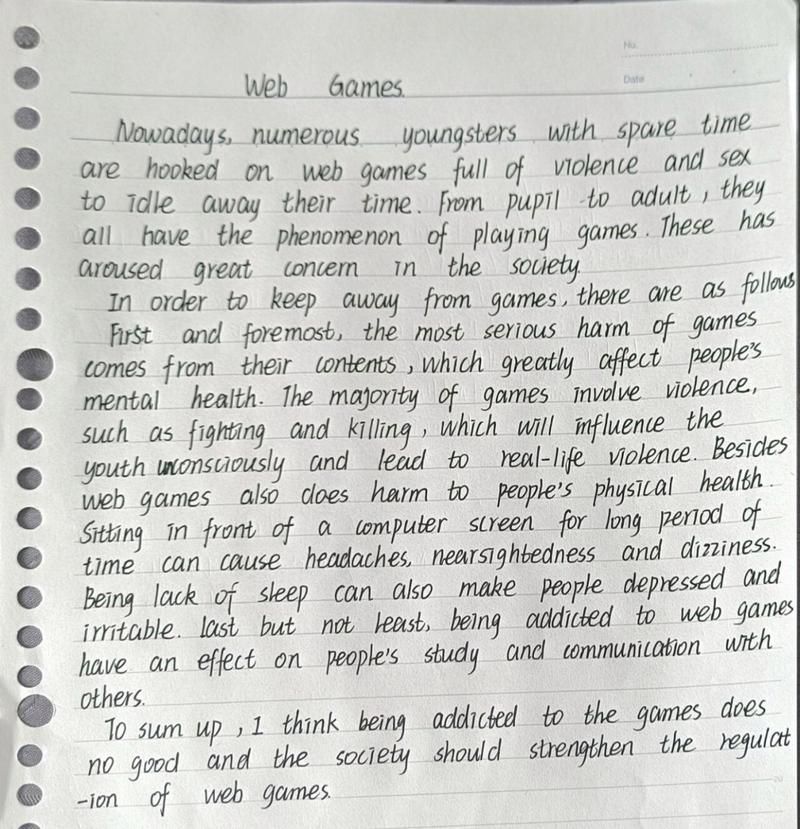 No.
Date
Web Games.
Nowadays, numerous youngsters with spare time
are hooked on web games full of violence and sex
to idle away their time. From pupil to adult, they
all have the phenomenon of playing games. These has
aroused great concern in the society.
In order to keep away from games, there are as follows
First and foremost, the most serious harm of games
comes from their contents, which greatly affect people's
mental health. The majority of games involve violence,
such as fighting and killing, which will influence the
youth unconsciously and lead to real-life violence. Besides
web games also does harm to people's physical health.
Sitting in front of a computer screen for long period of
time can cause headaches, nearsightedness and dizziness.
Being lack of sleep can also make people depressed and
irritable. last but not least, being addicted to web games
have an effect on people's study and communication with
others.
To sum up, I think being addicted to the games does
no good and the society should strengthen the regulat
-ion of web games.